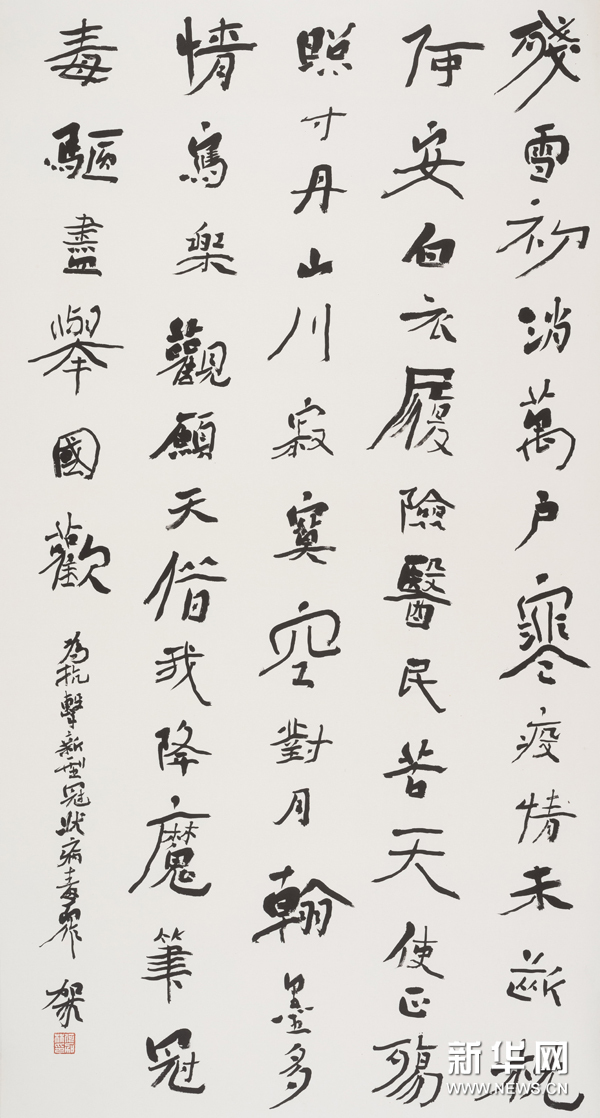 殘雪初消萬戶寒疫情未斷
何安白衣履險醫民苦天使正殤
照寸丹山川寂寞空對月翰墨多
情寫樂觀願天借我降魔筆冠
毒驅盡舉國歡
為抗擊新型冠狀病毒而作
新华网
WWW.NEWS.CN